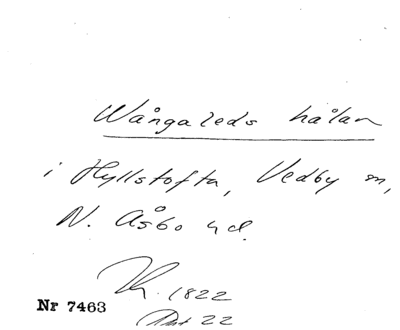 Wångaleds hålan
i Hyllstofta, Vedby sn,
N. Åsbo hd.
1822
Nr 7463
22